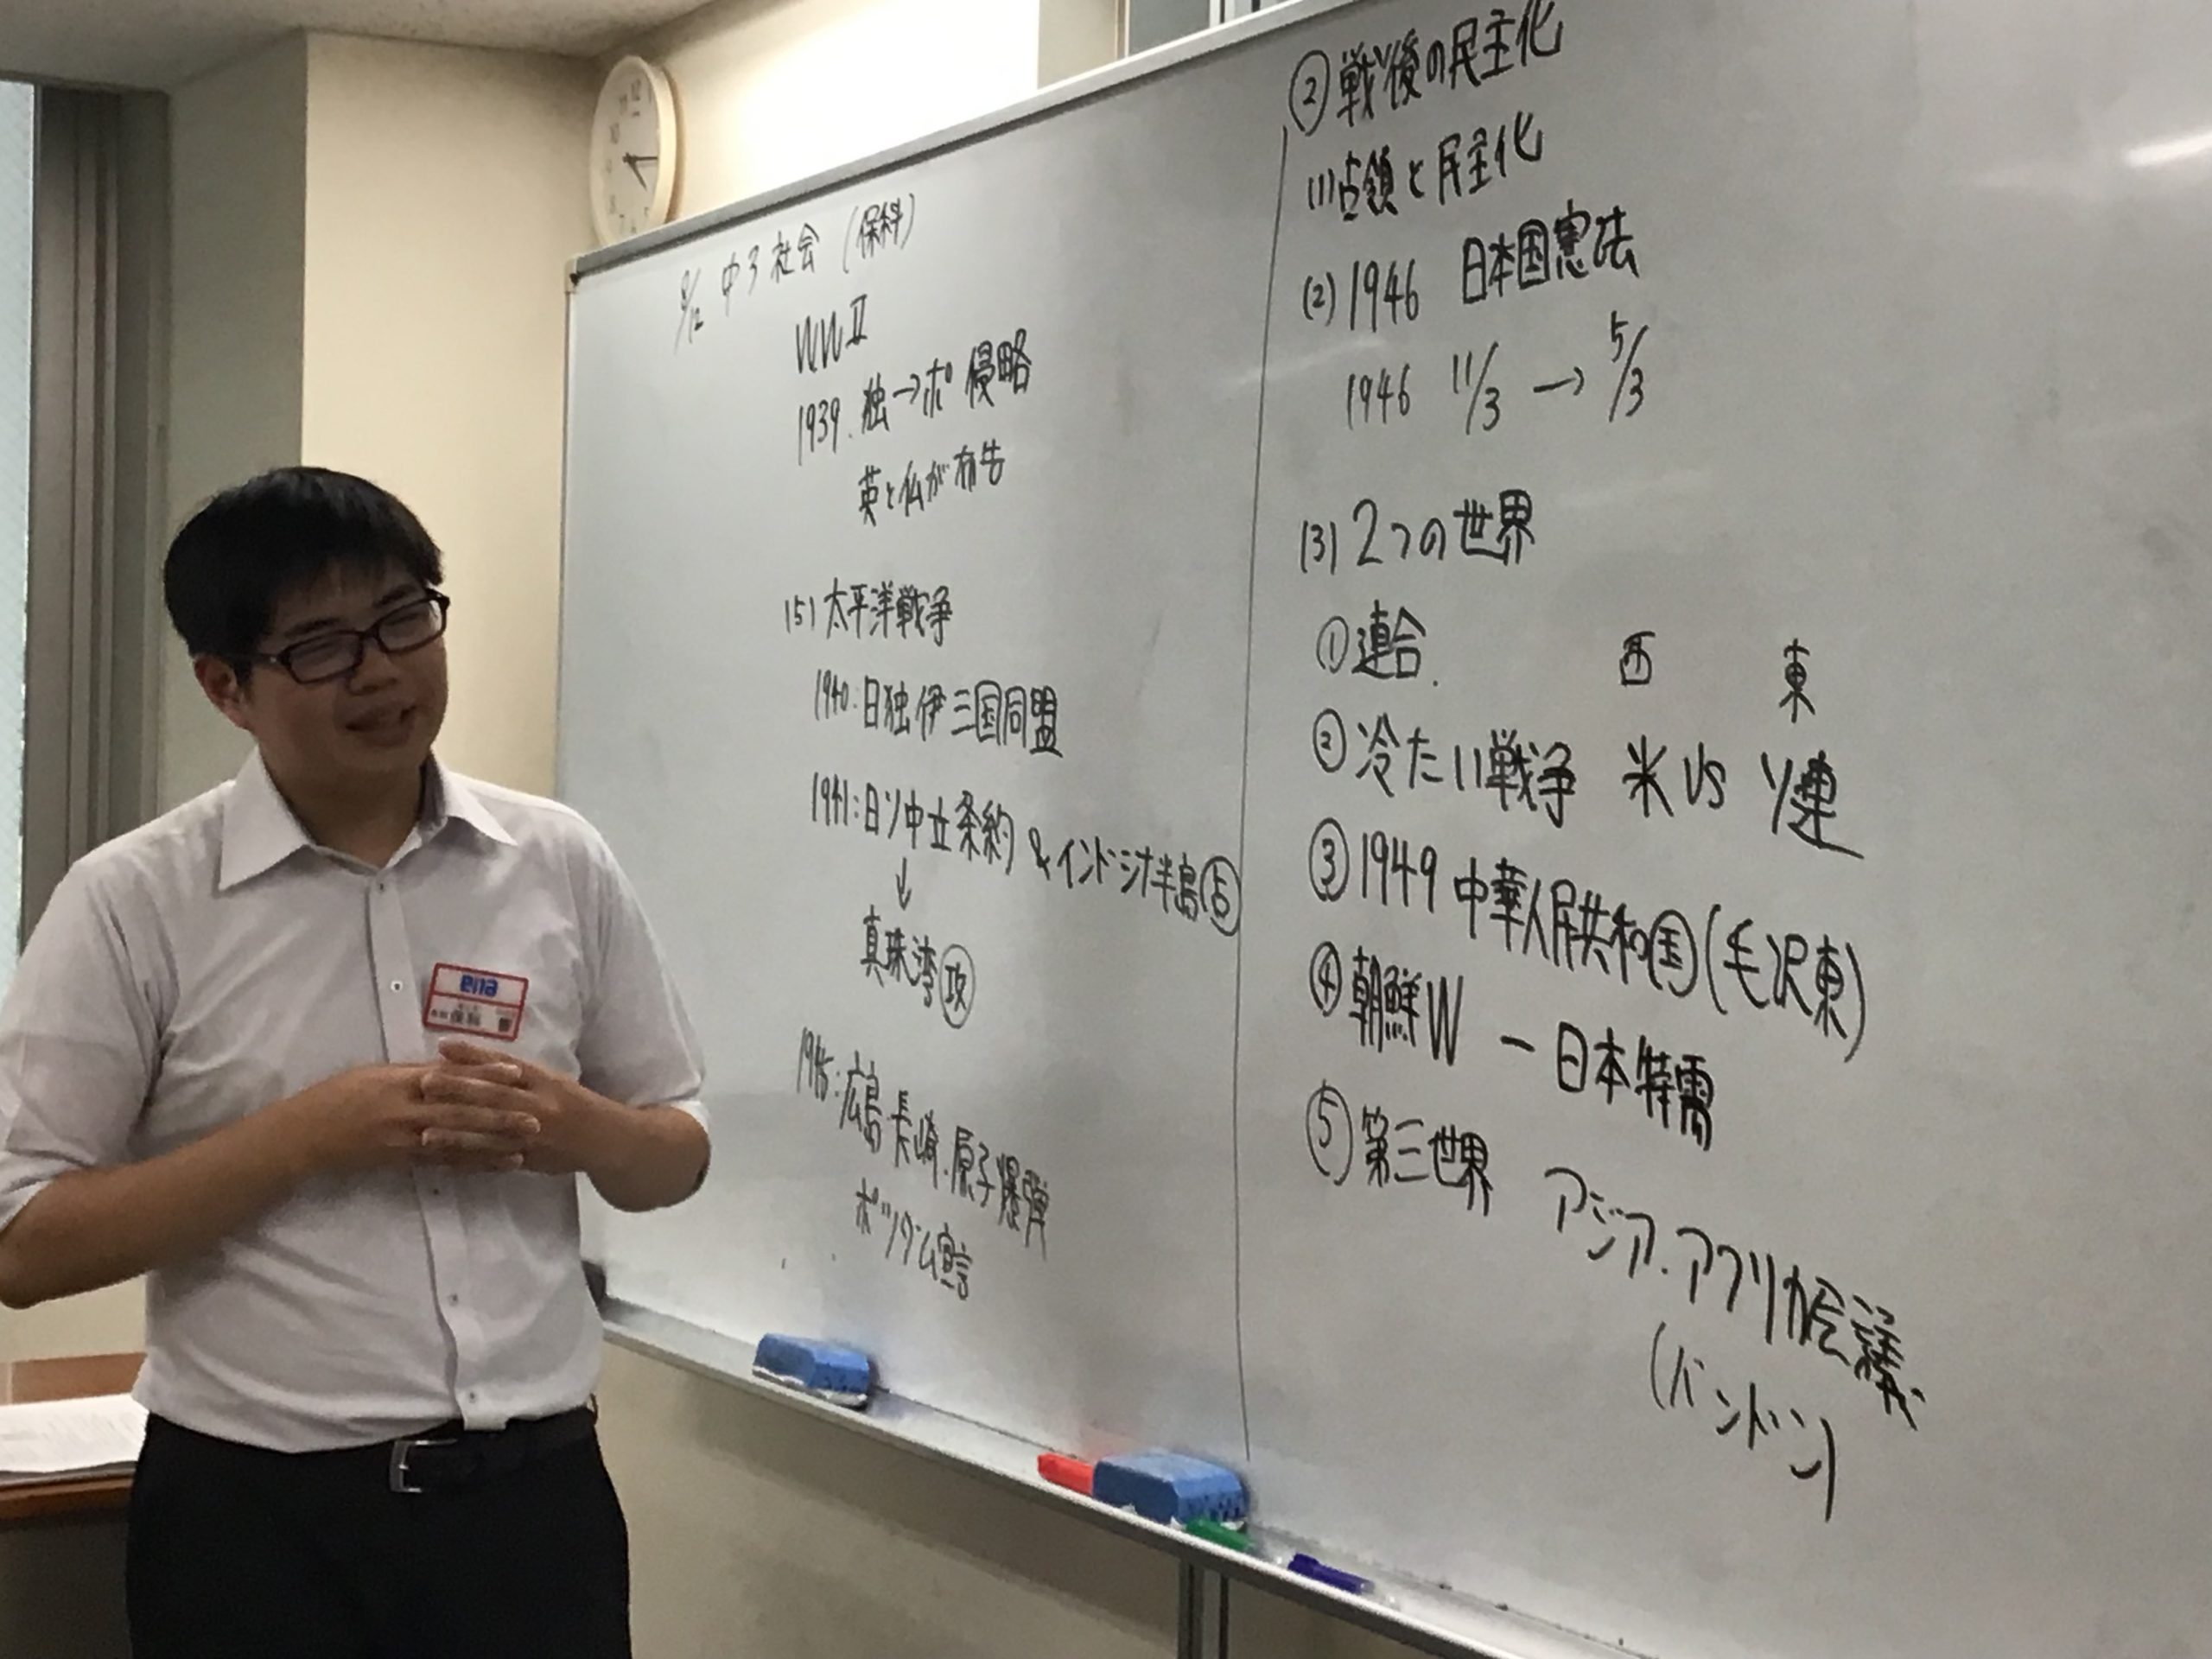 8/12 中3 社会 (保科)
WWⅡ
1939. 独→ポ 侵略
英と仏が布告
(5) 太平洋戦争
1940:日独伊三国同盟
1941:日ソ中立条約 & インドシナ半島占
↓
真珠湾攻
1945:広島.長崎.原子爆弾
ポツダム宣言
② 戦後の民主化
(1) 占領と民主化
(2) 1946 日本国憲法
1946 11/3 → 5/3
(3) 2つの世界
① 連合. 西 東
② 冷たい戦争 米 VS ソ連
③ 1949 中華人民共和国(毛沢東)
④ 朝鮮W - 日本特需
⑤ 第三世界 アジア.アフリカ会議
(バンドン)
ena
保科